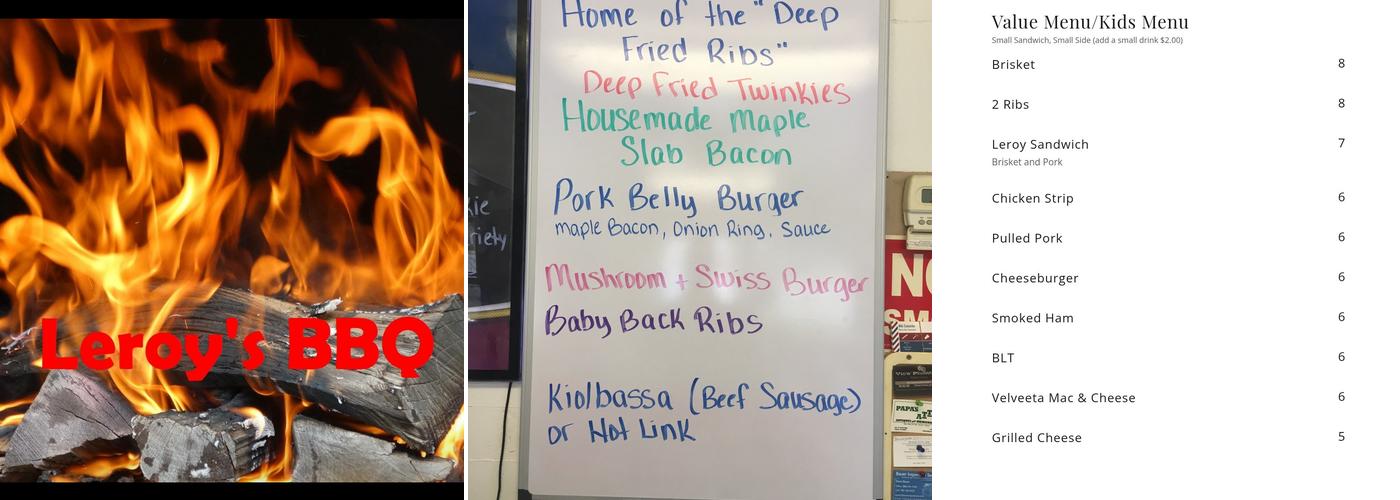 Leroy's BBQ
Home of the "Deep
Fried Ribs"
Deep Fried Twinkies
Housemade Maple
Slab Bacon
Pork Belly Burger
maple Bacon, Onion Ring, Sauce
Mushroom + Swiss Burger
Baby Back Ribs
Kiolbassa (Beef Sausage)
or Hot Link
Value Menu/Kids Menu
Small Sandwich, Small Side (add a small drink $2.00)
Brisket 8
2 Ribs 8
Leroy Sandwich 7
Brisket and Pork
Chicken Strip 6
Pulled Pork 6
Cheeseburger 6
Smoked Ham 6
BLT 6
Velveeta Mac & Cheese 6
Grilled Cheese 5